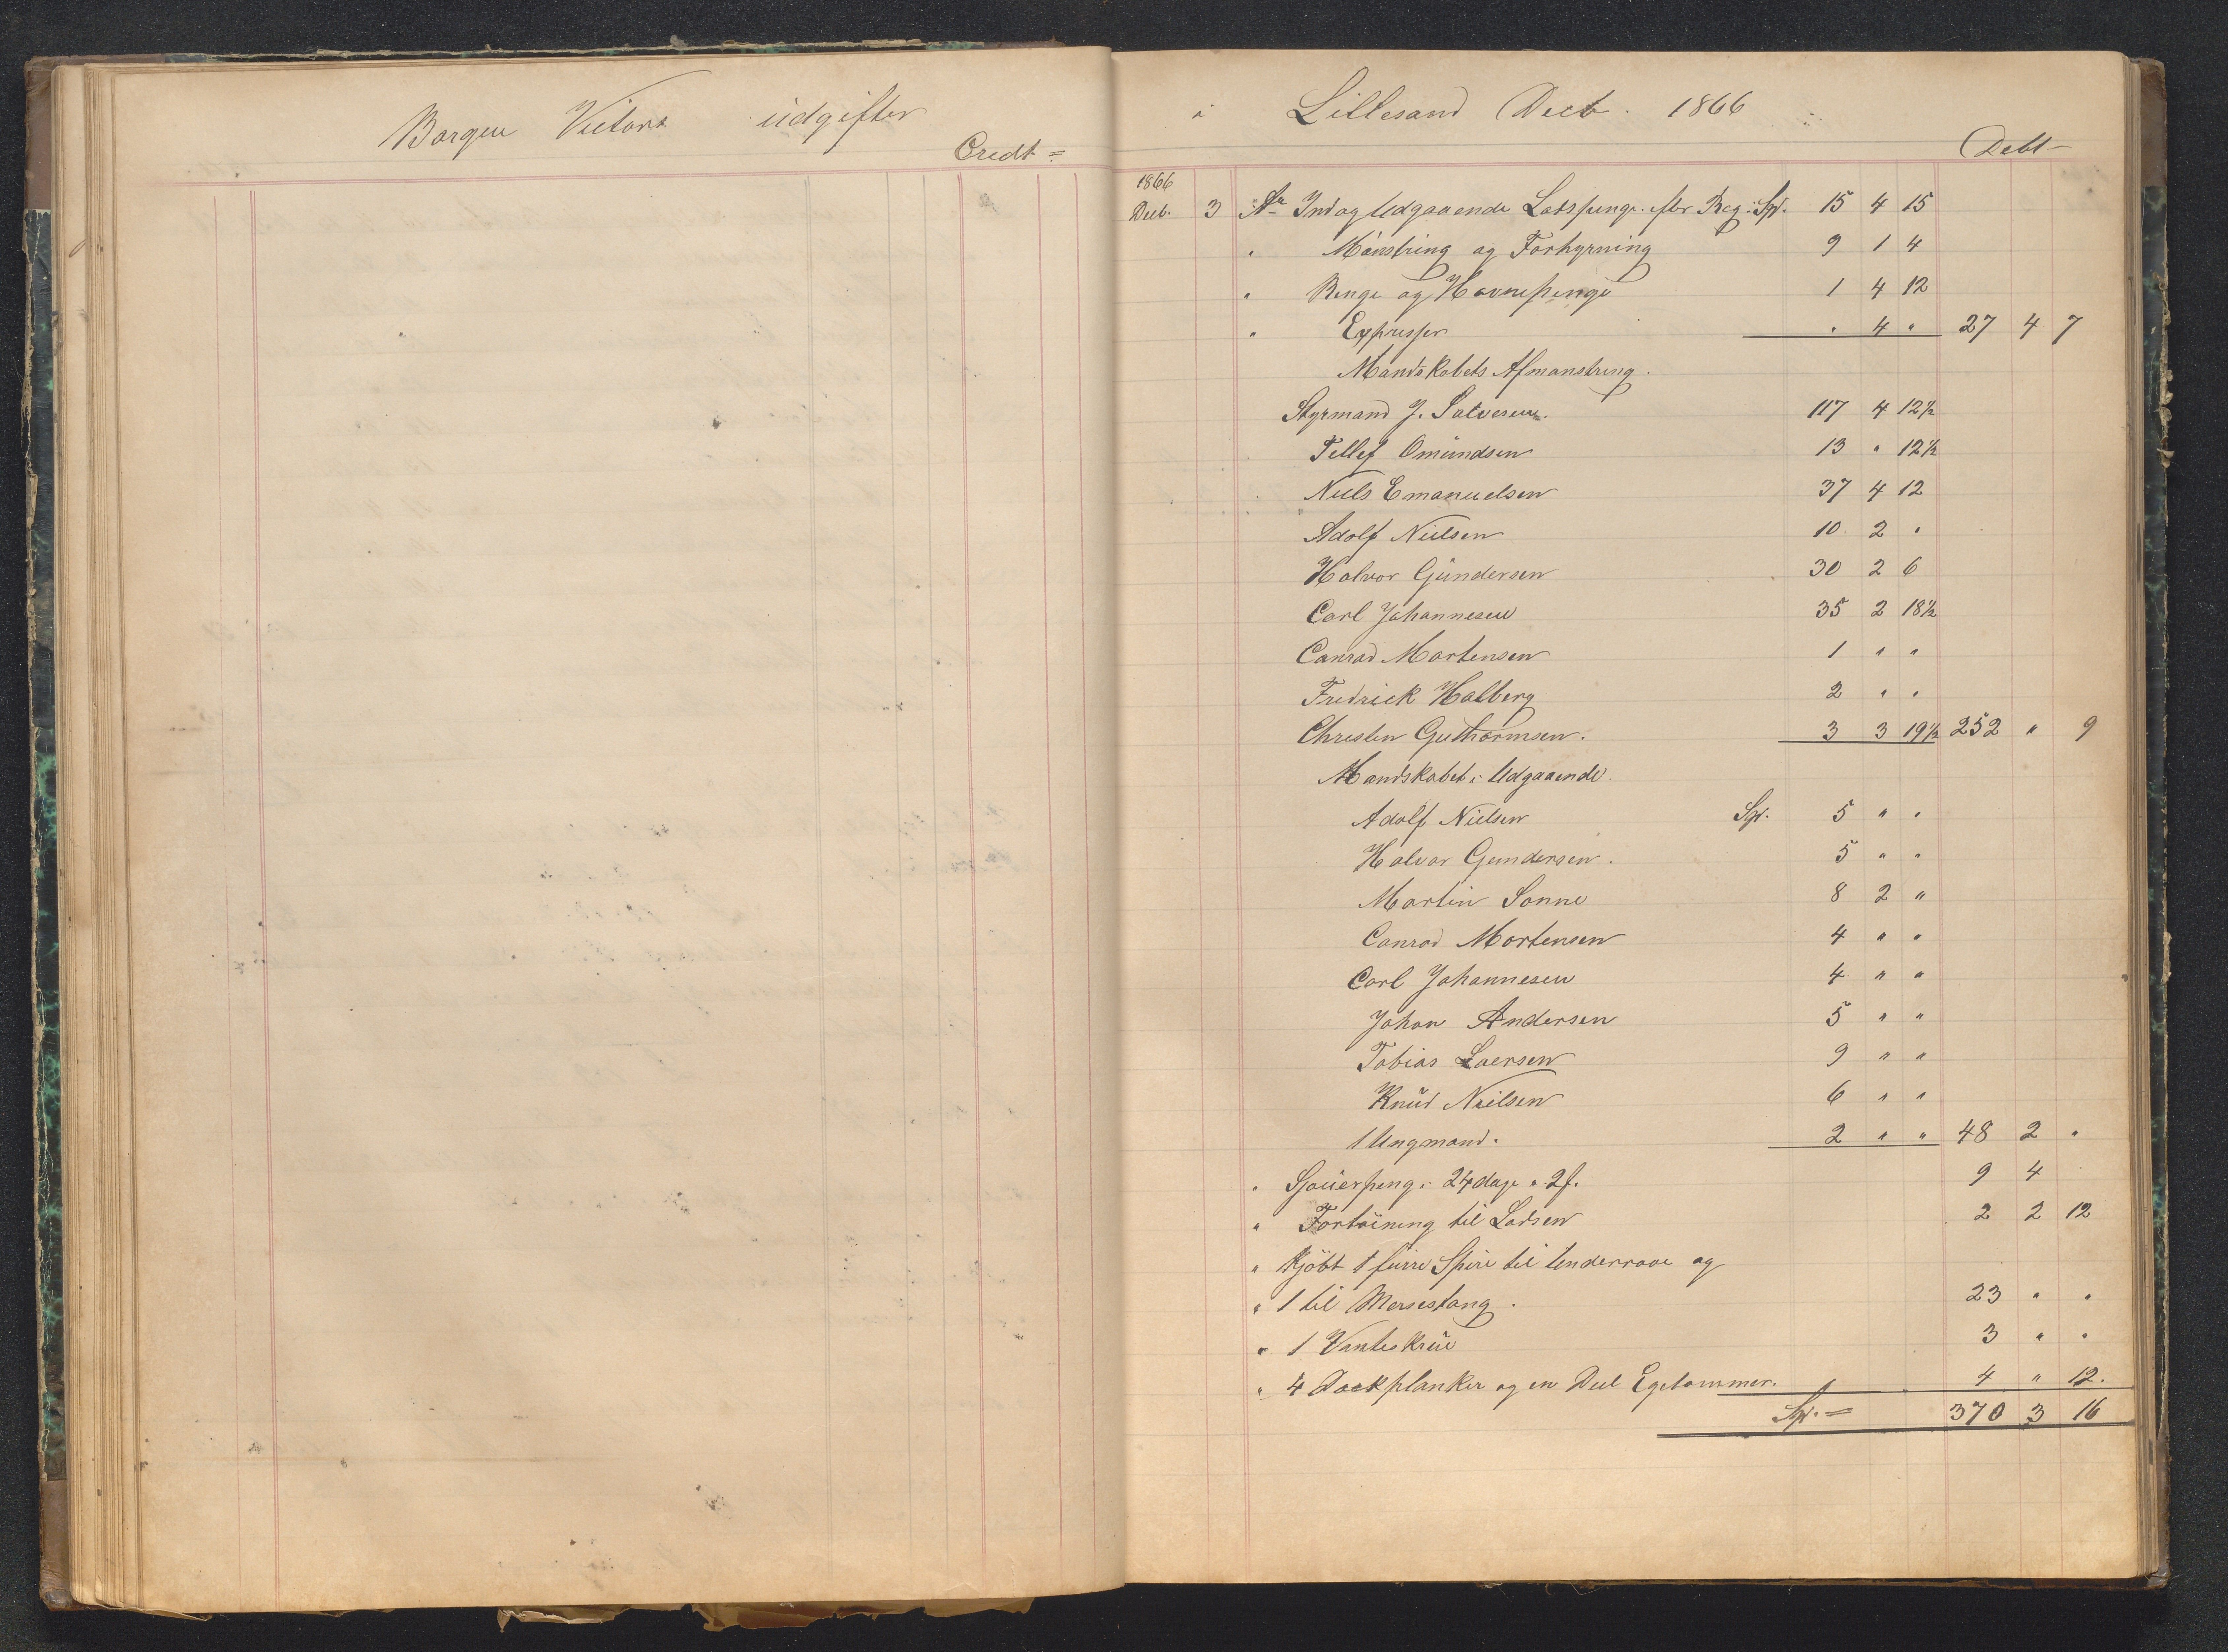 Barquen Victoria udgifter
Credt =
i Lillesand Decb. 1866
Debt
1866
Decb. 3 Ar Ind og Udgaaende Lodspenge efter Reg: Sp. 15 4 15
" Mönstring og Forhyrning 9 1 4
" Ringe og Havnepenge 1 4 12
" Expresser " 4 " 27 4 7
Mandskabets Afmønstring.
Styrmand J. Salvesen. 117 4 12½
Tellef Omundsen 13 " 12½
Niels Emanuelsen 37 4 12
Adolf Nielsen 10 2 "
Halvor Gundersen 30 2 6
Carl Johannesen 35 2 18½
Conrad Mortensen 1 " "
Fredrick Halberg 2 " "
Christen Guthormsen. 3 3 19½ 252 " 9
Mandskabet i Udgaaende.
Adolf Nielsen Sp. 5 " "
Halvor Gundersen. 5 " "
Martin Sonne 8 2 "
Conrad Mortensen 4 " "
Carl Johannesen 4 " "
Johan Andersen 5 " "
Tobias Laersen 9 " "
Knud Nielsen 6 " "
1 Ungmand. 2 " " 48 2 "
" Sjouerpeng: 24 dage a 2f. 9 4
" Fortöining til Lodsen 2 2 12
" Kjöbt 1 furre Spire til Underraae og
" 1 til Mersestang. 23 " "
" 1 Vanteskrue 3 " "
" 4 Dœkplanker og en Deel Egetømmer. 4 " 12.
Sp. = 370 3 16